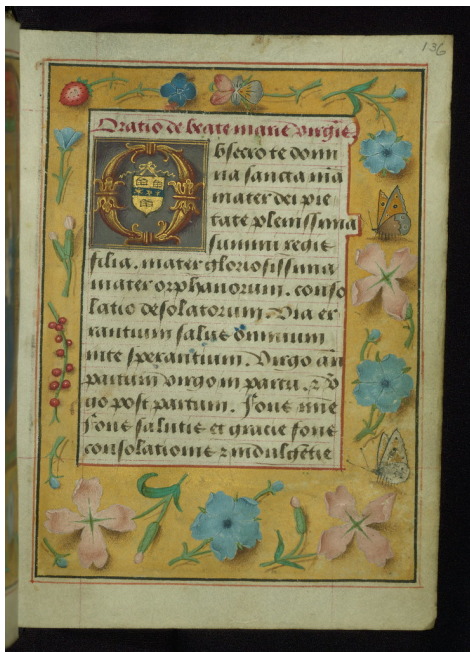 136
Oratio de beate marie virgīs
Obsecro te domi
na sancta mā
mater dei pie
tate plenissima
summi regis
filia. mater gloriosissima
mater orphanorum. conso
latio desolatorum. Via er
rantium salus omnium
in te sperantium. Virgo an
partum virgo in partu. ⁊ v̄
go post partum. Fons mīe
fons salutis et gracie fons
consolationis ⁊ indulgētie